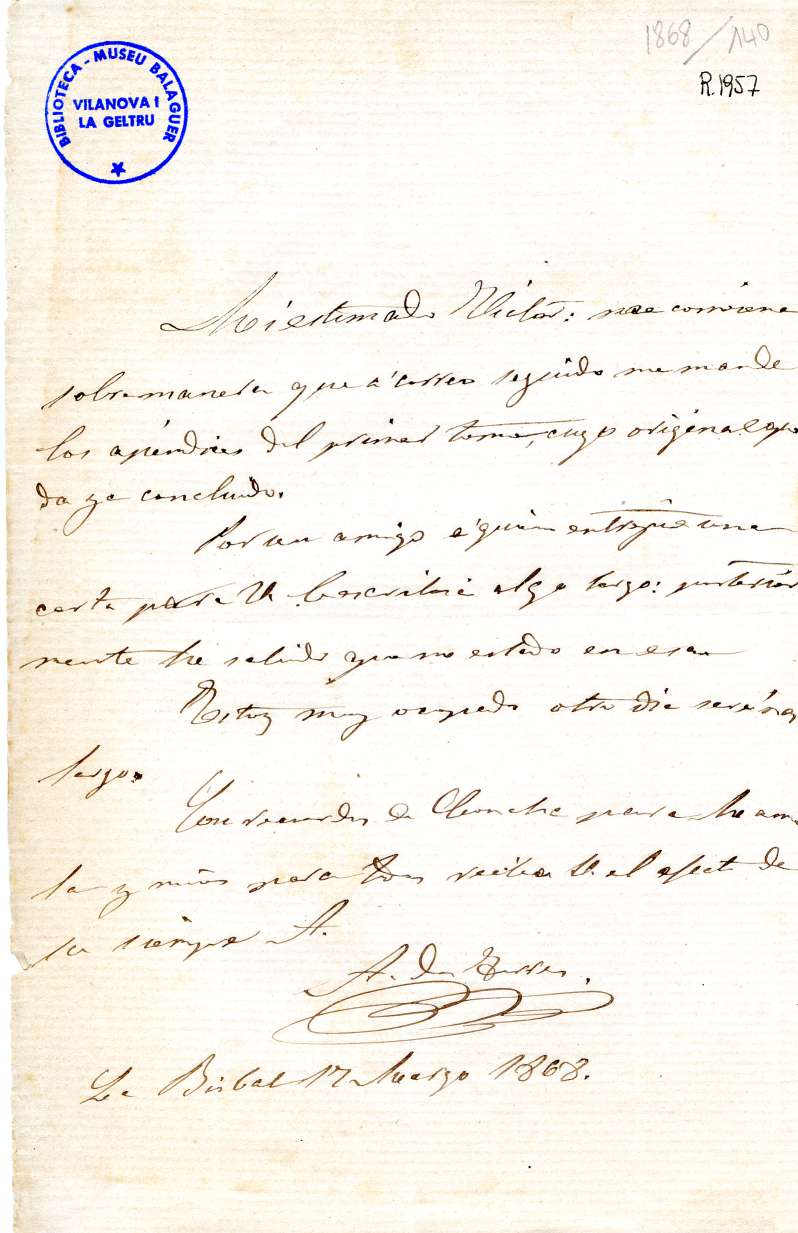 1868/140
R.1957
BIBLIOTECA - MUSEU BALAGUER
VILANOVA I
LA GELTRU
Mi estimado Victor: me conviene
sobremanera que a correo seguido me mande
los apéndices del primer tomo, cuyo original que
da ya concluido.
Por un amigo á quien entregué una
carta para V. le escribiré algo largo: posterior
mente he sabido que no estado en esa
Estoy muy ocupado otro dia seré mas
largo.
Con recuerdos de Concha para
y mios para todos reciba V. el afecto de
su siempre A.
A. de
La Bisbal 17 Marzo 1868.